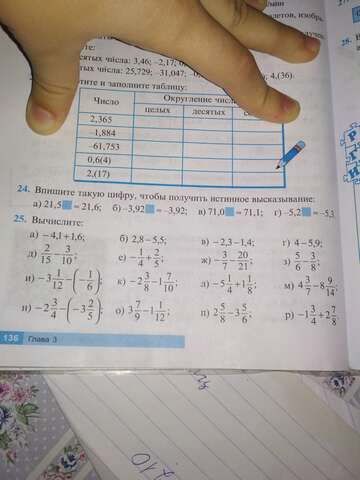 десятых числа: 3,46; −2,17;
числа: 25,729; −31,047; 4,(36).
и заполните таблицу:
Число
Округление
целых
десятых
2,365
−1,884
−61,753
0,6(4)
2,(17)
24. Впишите такую цифру, чтобы получить истинное высказывание:
а) 21,5 = 21,6; б) −3,92 = −3,92; в) 71,0 = 71,1; г) −5,2 = −5,3
25. Вычислите:
а) −4,1+1,6; б) 2,8−5,5; в) −2,3−1,4; г) 4−5,9;
д) 2/15 − 3/10; е) −1/4 + 2/5; ж) −3/7 − 20/21; з) 5/6 − 3/8;
и) −3 1/12 − (−1/6); к) −2 3/8 − 1 7/10; л) −5 1/4 + 1 1/8; м) 4 3/7 − 8 9/14;
н) −2 3/4 − (−3 2/5); о) 3 7/9 − 1 1/12; п) 2 5/8 − 3 5/6; р) −1 3/4 + 2 7/8.
136 Глава 3